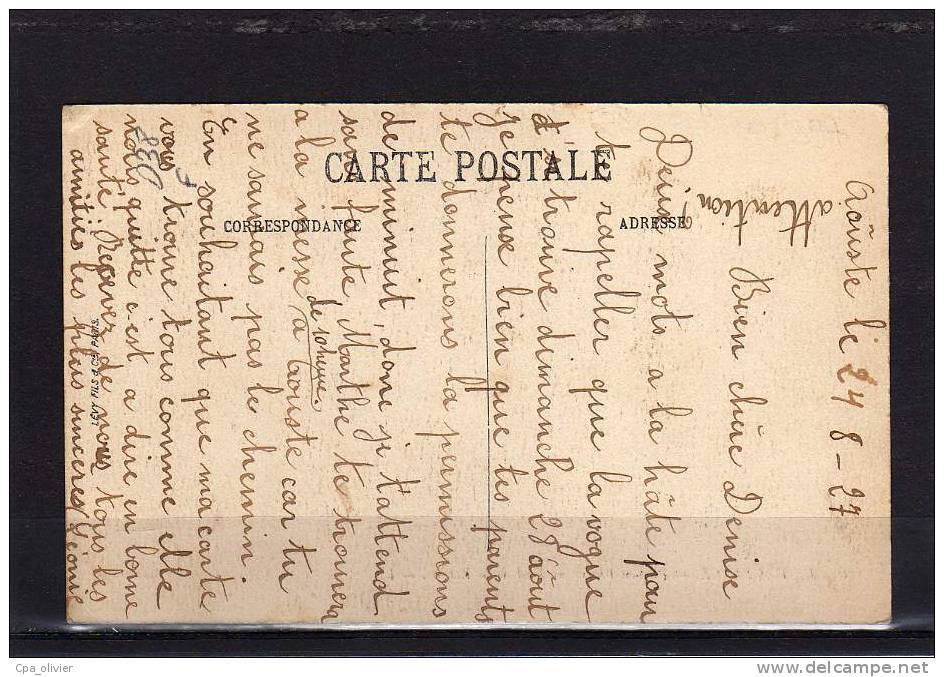 CARTE POSTALE
CORRESPONDANCE
ADRESSE
Aôuste le 24 8 – 27
attention!
Bien chère Denise
Deux mots a la hâte pour
te rapeller que la vogue
d' trouve dimanche 28 août
je pense bien que tes parents
te donnerons la permissions
de minuit, donc je t'attend
sans faute, Marthe te trouvera
a la messe de 10 heures a Aouste car tu
ne saurais pas le chemin.
En souhaitant que ma carte
vous trouve tous comme elle
nous quitte c'est a dire en bonne
santé. Recevez de nous tous les
amitiés les plus sincères Léonie
LEVY FILS & Cie PARIS
Cpa_olivier
delcampe.net